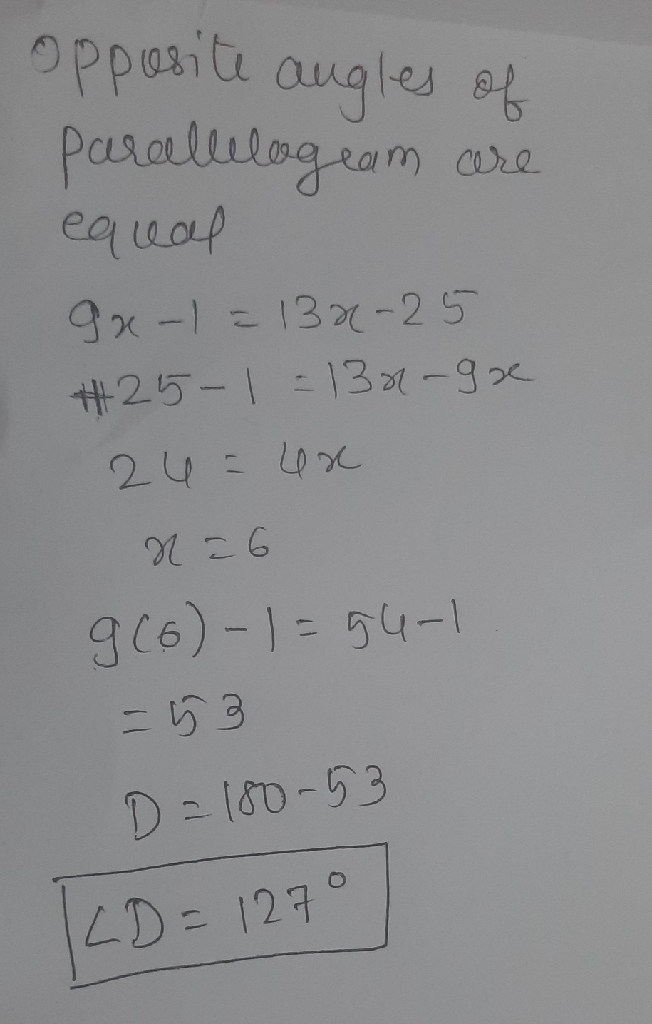 Opposite angles of
parallelogram are
equal
9x - 1 = 13x - 25
25 - 1 = 13x - 9x
24 = 4x
x = 6
9(6) - 1 = 54 - 1
= 53
D = 180 - 53
∠D = 127°